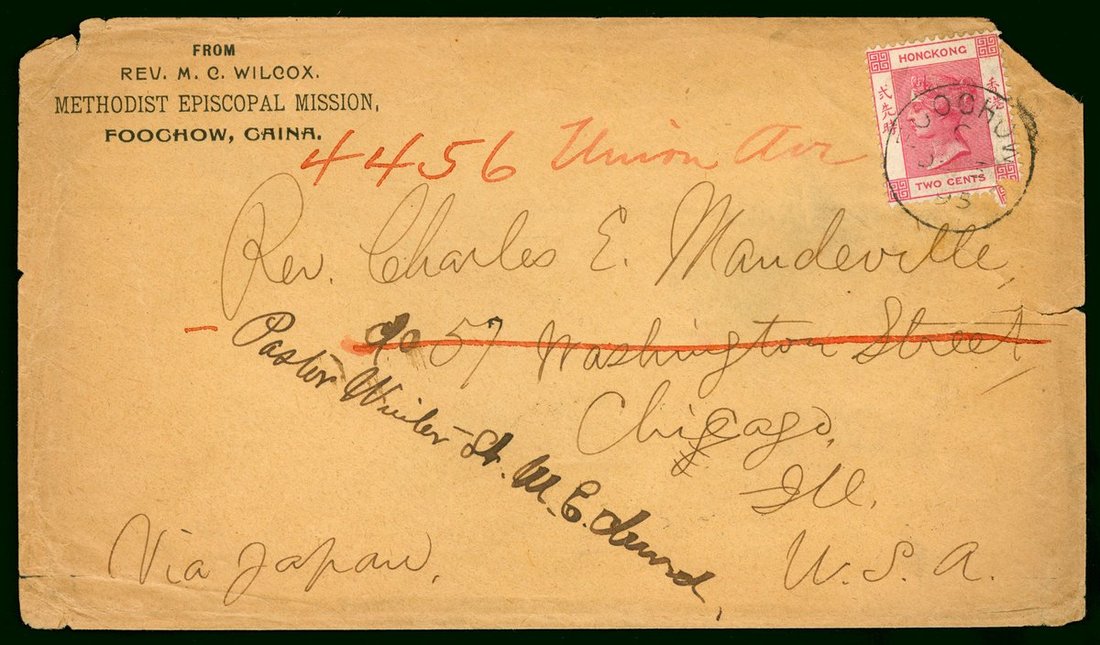 FROM
REV. M. C. WILCOX.
METHODIST EPISCOPAL MISSION,
FOOCHOW, CAINA.
HONGKONG
香港
弍先時
TWO CENTS
FOOCHOW
C
93
4456 Union Ave
Rev. Charles E. Mandeville,
57 Washington Street
Pastor St. M. E. Church,
Chicago,
Ill.
U. S. A.
Via Japan.